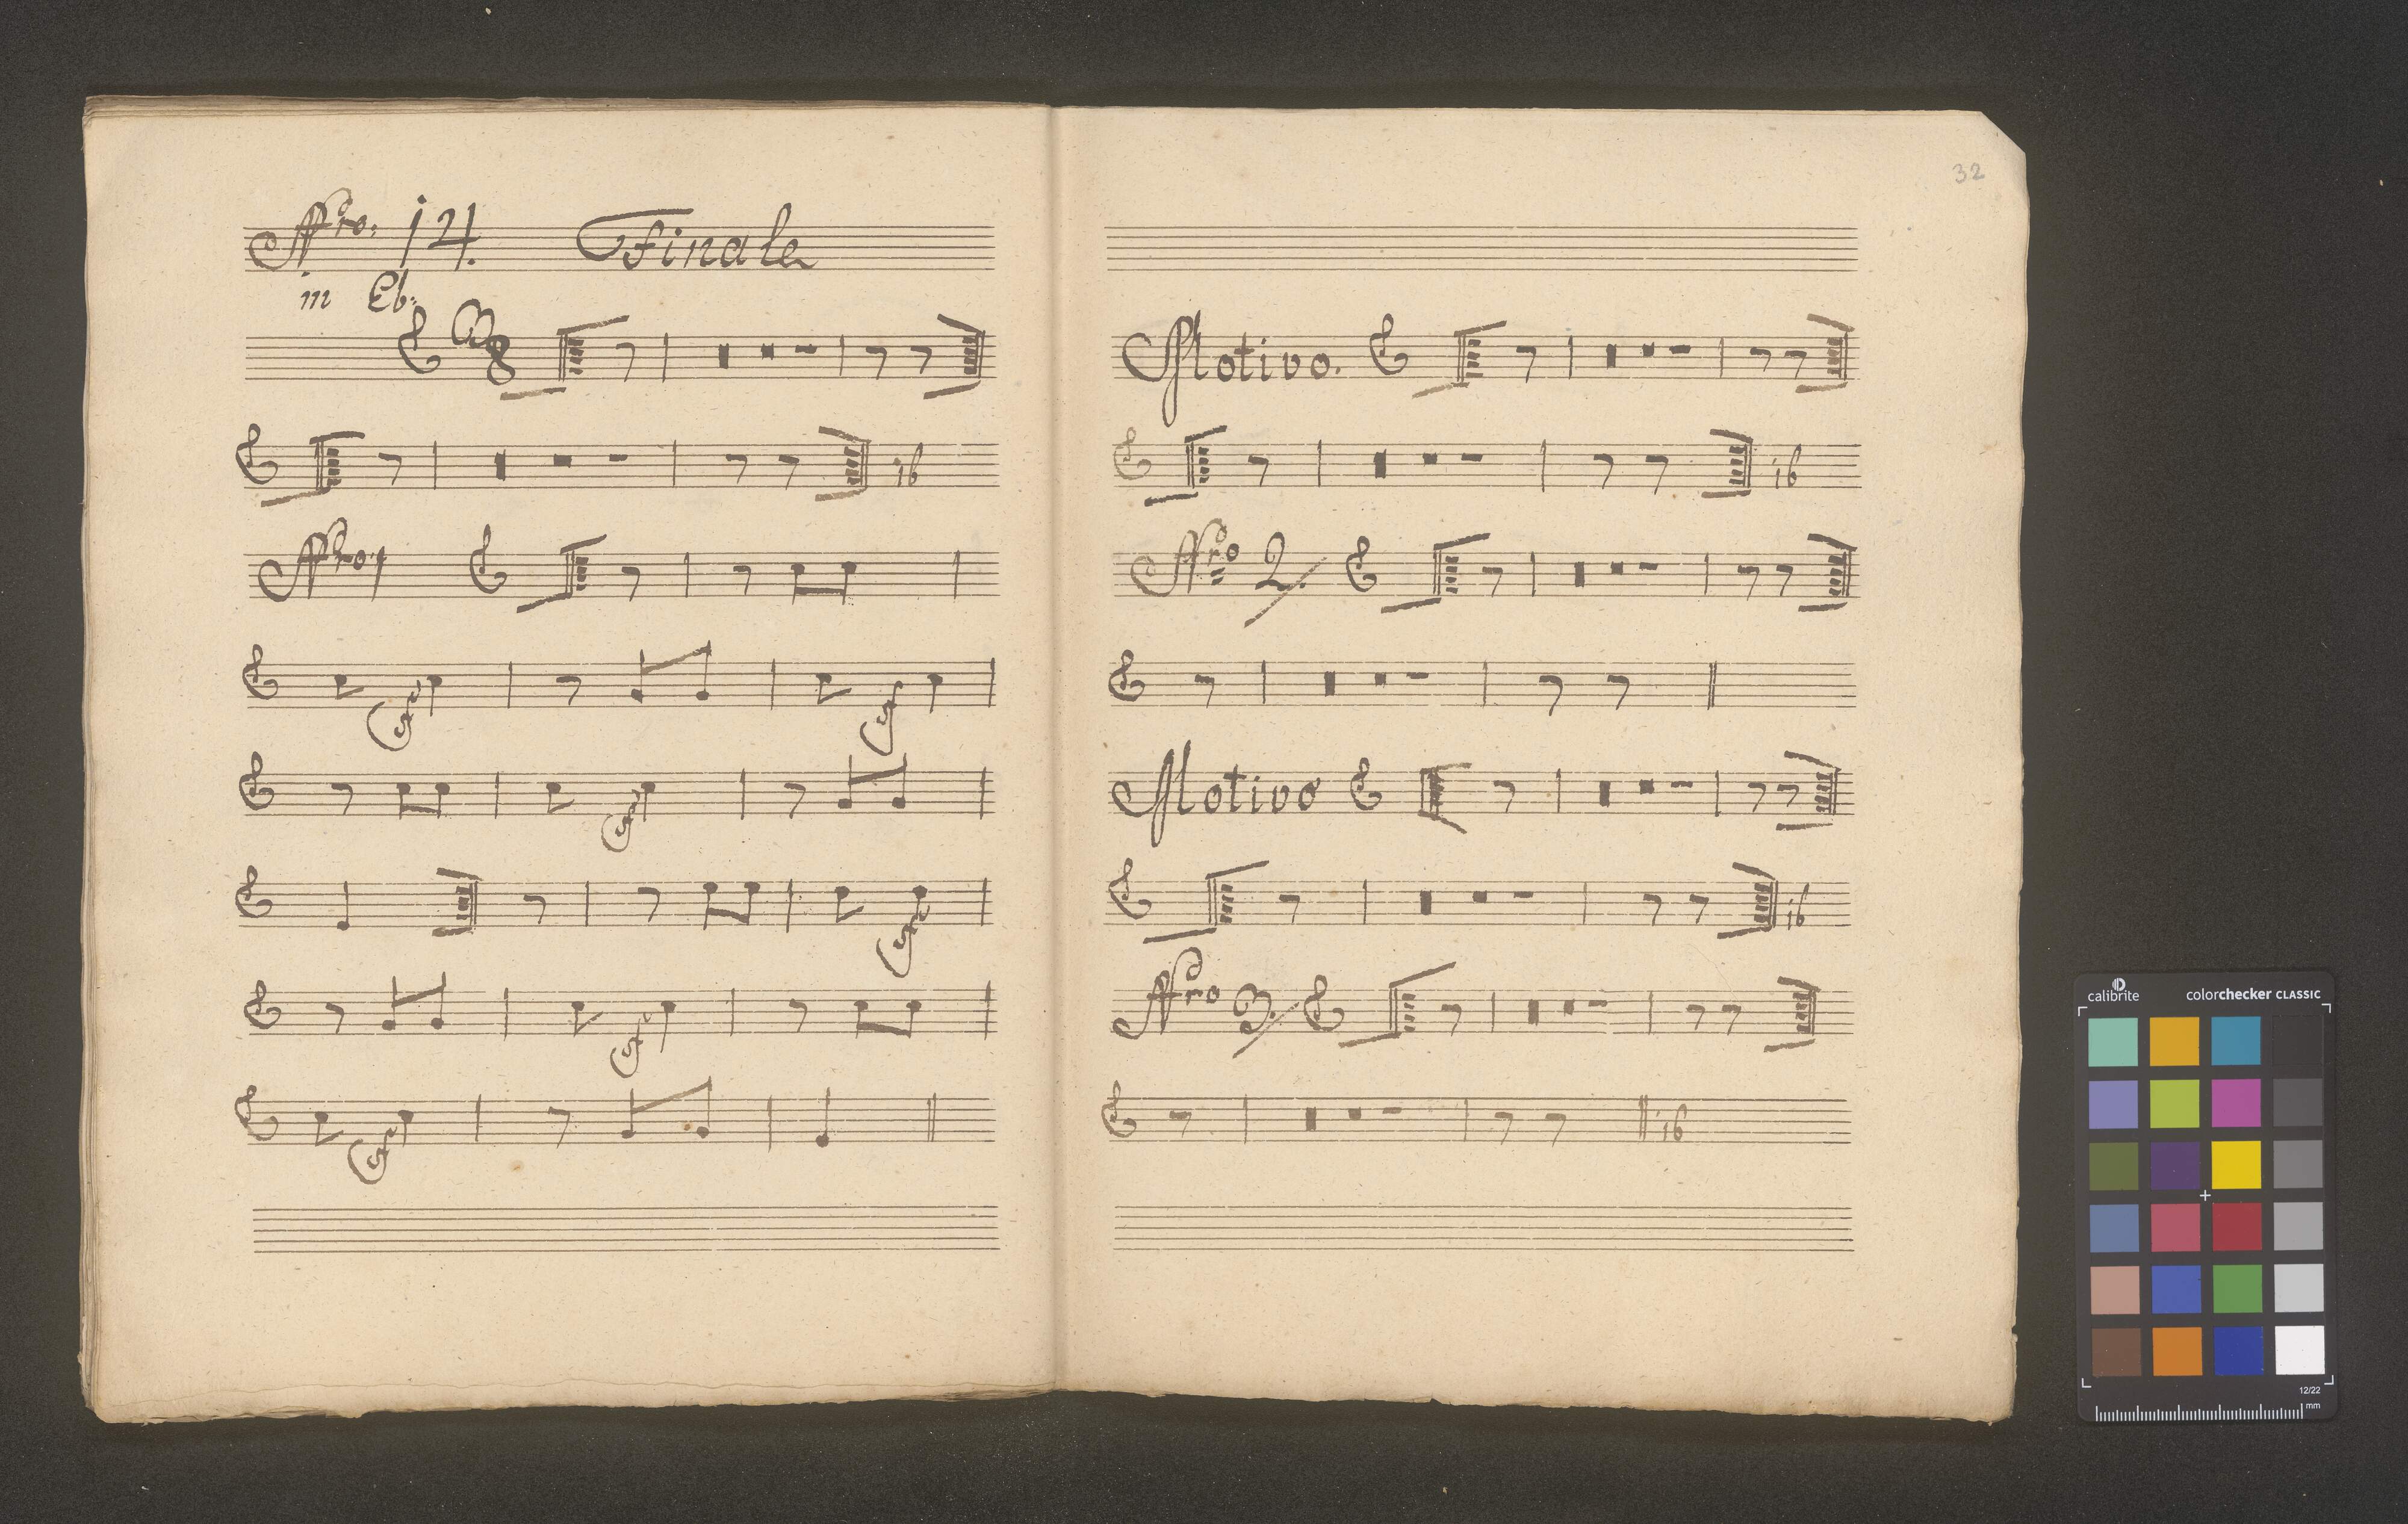 Nro: 14. Finale
in Eb:
3
8
16
Nro. 1
32
Motivo.
16
Nro 2.
Motivo
16
Nro 3.
16
calibrite colorchecker CLASSIC
12/22
mm